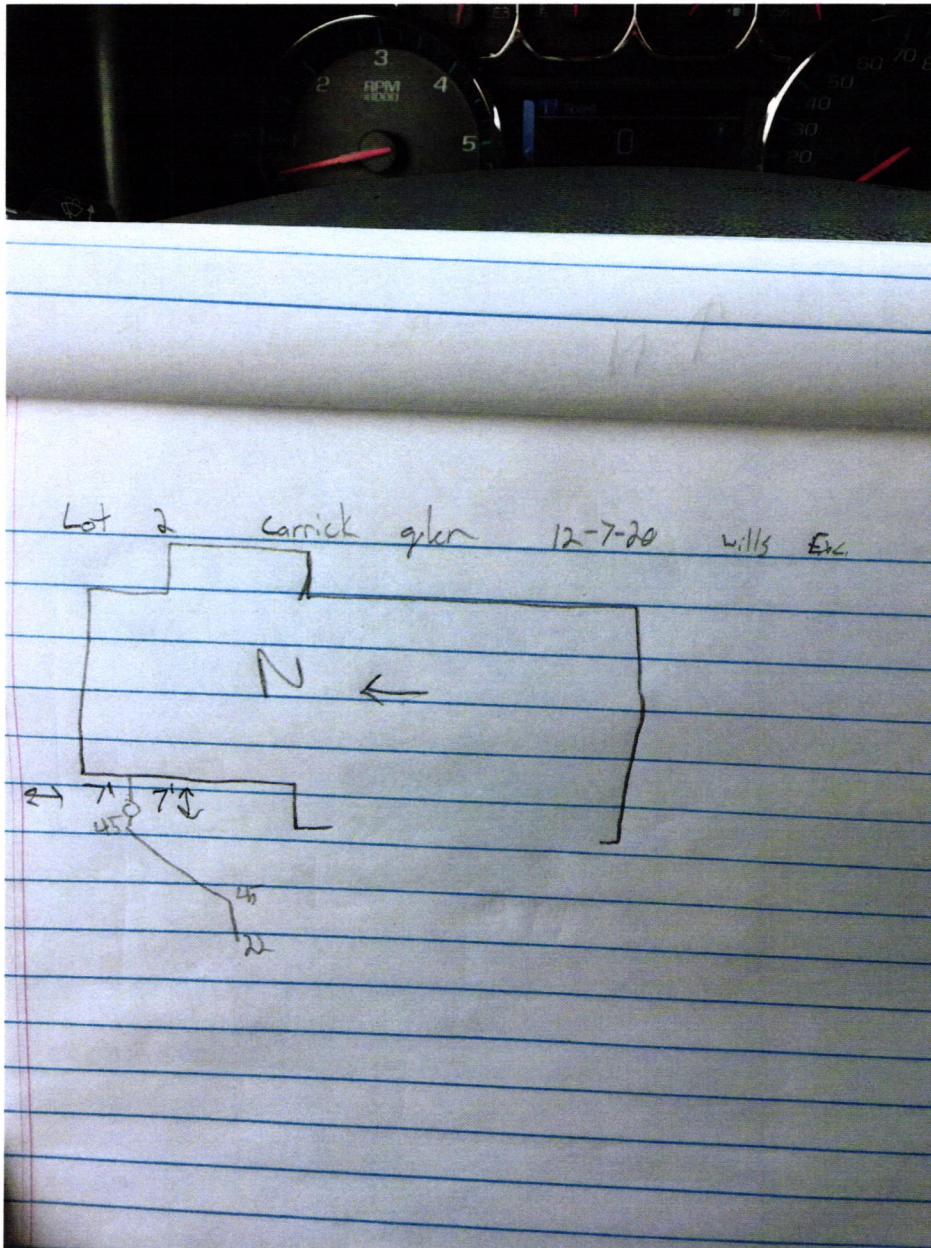 3
2 4
RPM
x1000
5
0
70
60
50
40
30
20
Lot 2 Carrick glen 12-7-20 wills Exc.
N ←
↔ 7' 7' ↕
45
45
22